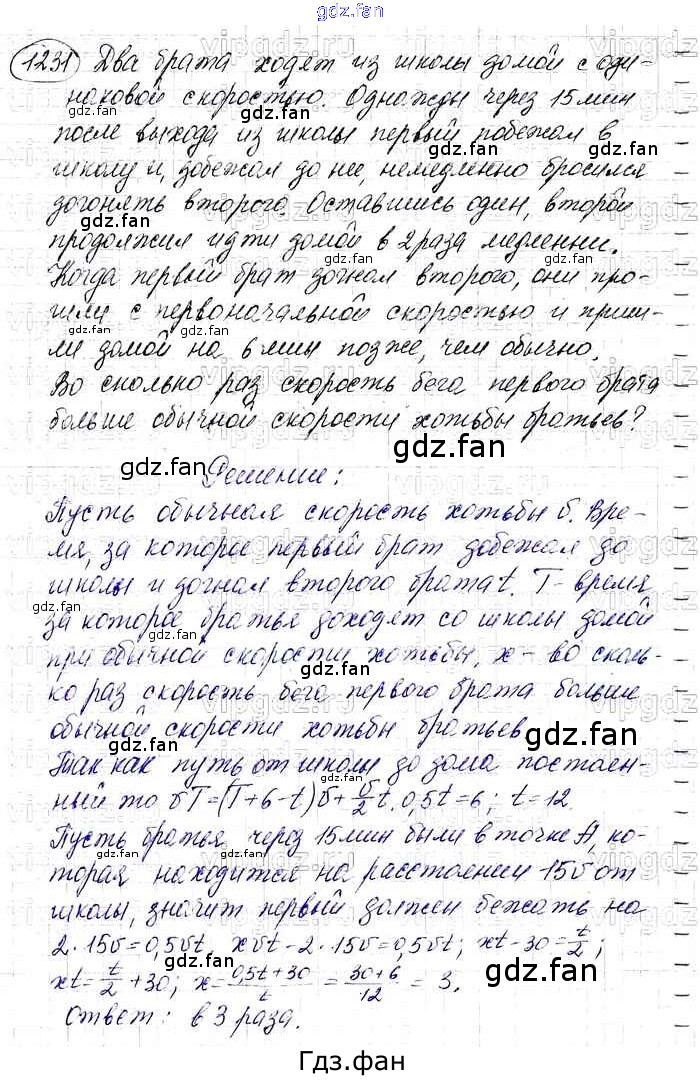 gdz.fan
1231 Два брата ходят из школы домой с оди-
наковой скоростью. Однажды через 15 мин
после выхода из школы первый побежал в
школу и, добежал до нее, немедленно бросился
догонять второго. Оставшись один, второй
продолжил идти домой в 2 раза медленни.
Когда первый брат догнал второго, они по-
шли с первоначальной скоростью и приш-
ли домой на 6 мин позже, чем обычно.
Во сколько раз скорость бега первого брата
больше обычной скорости хотьбы братьев?
gdz.fan
gdz.fan
Решение:
Пусть обычная скорость хотьбы υ. Вре-
мя, за которое первый брат добежал до
школы и догнал второго брата t. T - время,
за которое братья доходят со школы домой
при обычной скорости хотьбы, x - во сколь-
ко раз скорость бега первого брата больше
обычной скорости хотьбы братьев.
Так как путь от школы до дома постоян-
ный то υT=(T+6-t)υ+υ/2 t. 0,5t=6; t=12.
Пусть братья, через 15 мин были в точке A, ко-
торая находится на расстоянии 15υ от
школы, значит первый должен бежать на
2·15υ=0,5υt, xυt-2·15υ=0,5υt; xt-30=t/2;
xt=t/2+30; x=(0,5t+30)/t=(30+6)/12=3.
Ответ: в 3 раза.
Гдз.фан